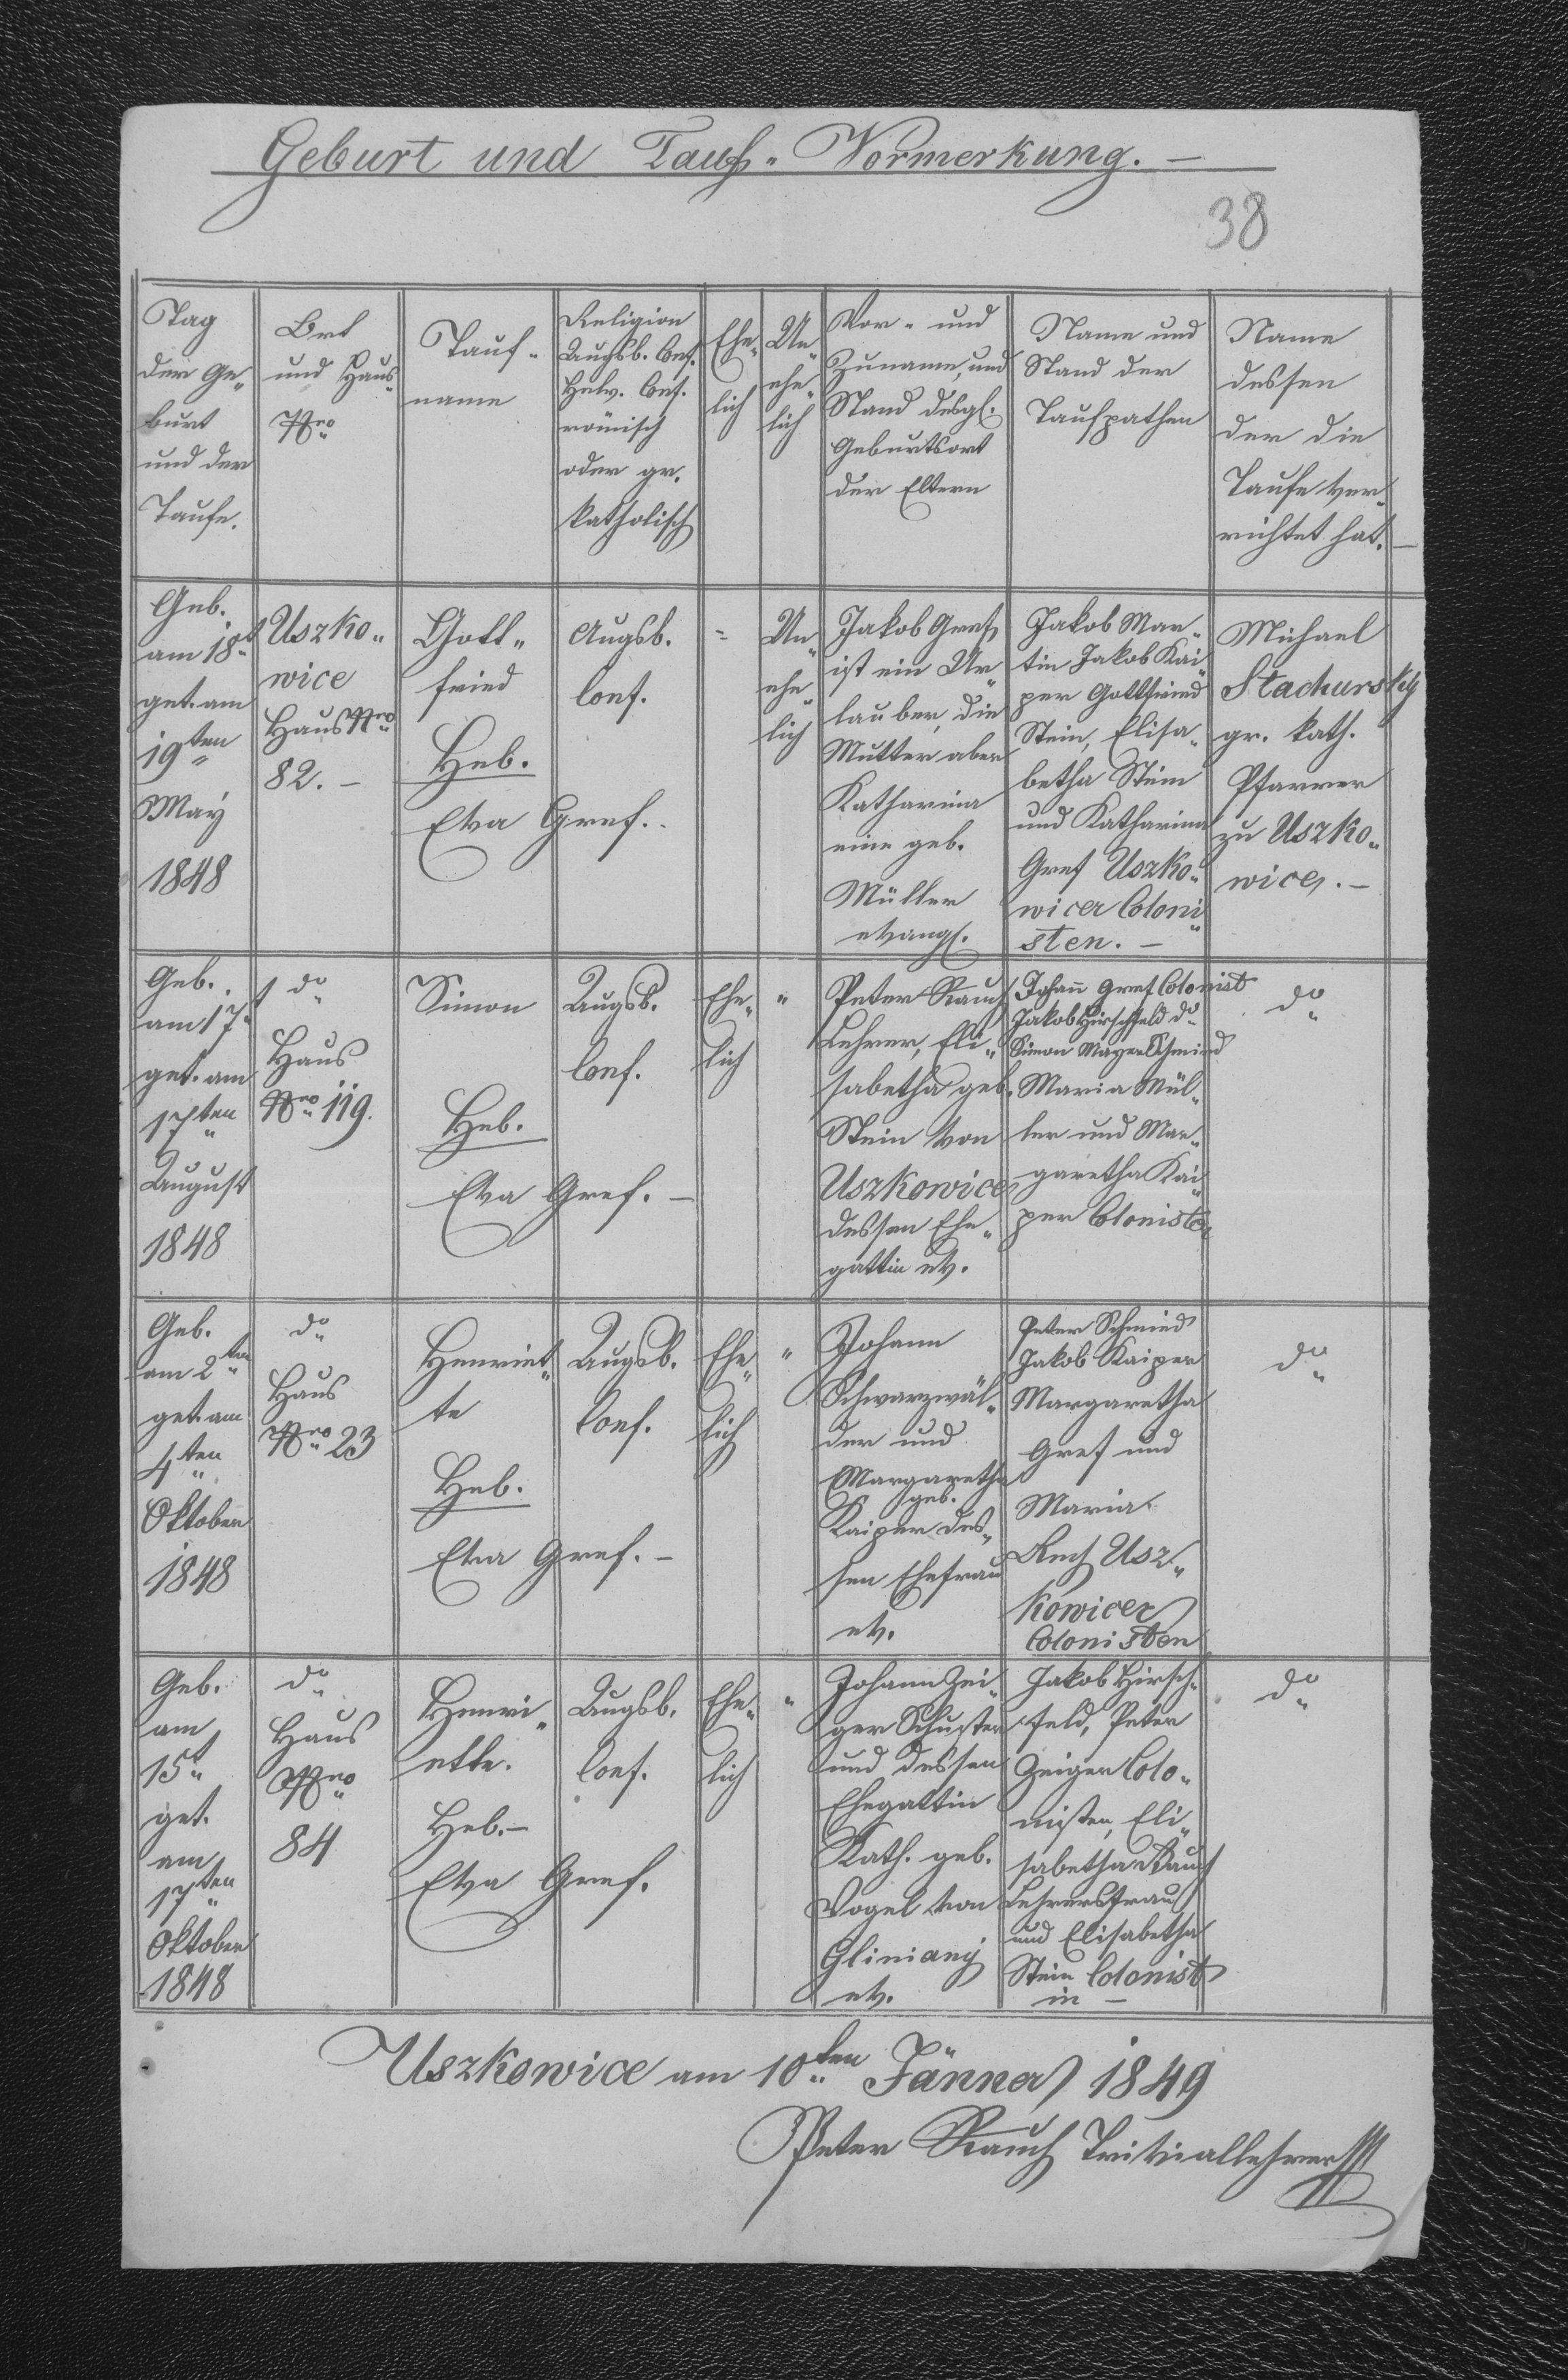 Geburt und Tauf- Vormerkung. —
38
Tag
der Ge-
burt
und der
Taufe.
Ort
und Haus-
Nro
Tauf-
name
Religion
Augsb. Conf.
Helv. Conf.
römisch
oder gr.
katholisch
Ehe-
lich
Un-
ehe-
lich
Vor- und
Zuname, und
Stand desgl.
Geburtsort
der Eltern
Name und
Stand der
Taufpathen
Name
dessen
der die
Taufe ver-
richtet hat. —
Geb.
am 18t
get. am
19ten
May
1848
Uszko-
wice
Haus Nro
82. —
Gott-
fried
Heb.
Eva Gref. -
Augsb.
Conf.
=
Un-
ehe-
lich
Jakob Gref
ist ein Ur-
lauber, die
Mutter aber
Katharina
eine geb.
Müller
evangl.
Jakob Mar-
tin Jakob Kai-
per Gottfried
Stein, Elisa-
betha Stein
und Katharina
Gref Uszko-
wicer Coloni-
sten. —
Michael
Stachursky
gr. kath.
Pfarrer
zu Uszko-
wice. —
Geb.
am 17t
get. am
17ten
August
1848
do
Haus
Nro 119.
Simon
Heb.
Eva Gref. —
Augsb.
Conf.
Ehe-
lich
"
Peter Rauch
Lehrer, Eli-
sabetha geb.
Stein von
Uszkowice
dessen Ehe-
gattin ev.
Johann Gref Colonist
Jakob Hirschfeld do
Simon Mayer Schmied
Maria Mül-
ler und Mar-
garetha Kai-
per Colonisten
do
Geb.
am 2ten
get. am
4ten
Oktober
1848
do
Haus
Nro 23
Henriet-
te
Heb.
Eva Gref. —
Augsb.
Conf.
Ehe-
lich
"
Johann
Schwarzwäl-
der und
Margaretha
geb.
Kaiper des-
sen Ehefrau
ev.
Peter Schmied
Jakob Kaiper
Margaretha
Gref und
Maria
Usz-
kowicer
Colonisten
do
Geb.
am
15t
get.
am
17ten
Oktober
1848
do
Haus
Nro
84
Henri-
ette.
Heb. —
Eva Gref.
Augsb.
Conf.
Ehe-
lich
"
Johann Zei-
ger Schuster
und dessen
Ehegattin
Kath. geb.
Vogel von
Gliniany
ev.
Jakob Hirsch-
feld, Peter
Zeiger Colo-
nisten, Eli-
sabetha Rauch
Lehrersfrau
und Elisabetha
Stein Colonist-
in —
do
Uszkowice am 10ten Jänner 1849
Peter Rauch Triviallehrer